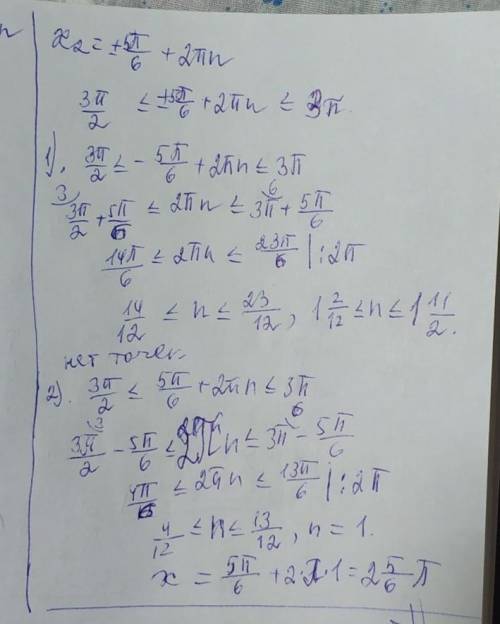 x₂ = ±5π/6 + 2πn
3π/2 ≤ ±5π/6 + 2πn ≤ 3π
1). 3π/2 ≤ - 5π/6 + 2πn ≤ 3π
3) 3π/2 + 5π/6 ≤ 2πn ≤ 3π 6) + 5π/6
14π/6 ≤ 2πn ≤ 23π/6 | : 2π
14/12 ≤ n ≤ 23/12, 1 2/12 ≤ n ≤ 1 11/2.
нет точек
2). 3π/2 ≤ 5π/6 + 2πn ≤ 3π
3π/2 3) - 5π/6 ≤ 2πn ≤ 3π 6) - 5π/6
4π/6 ≤ 2πn ≤ 13π/6 | : 2π
4/12 ≤ n ≤ 13/12, n = 1.
x = 5π/6 + 2·π·1 = 2 5/6 π